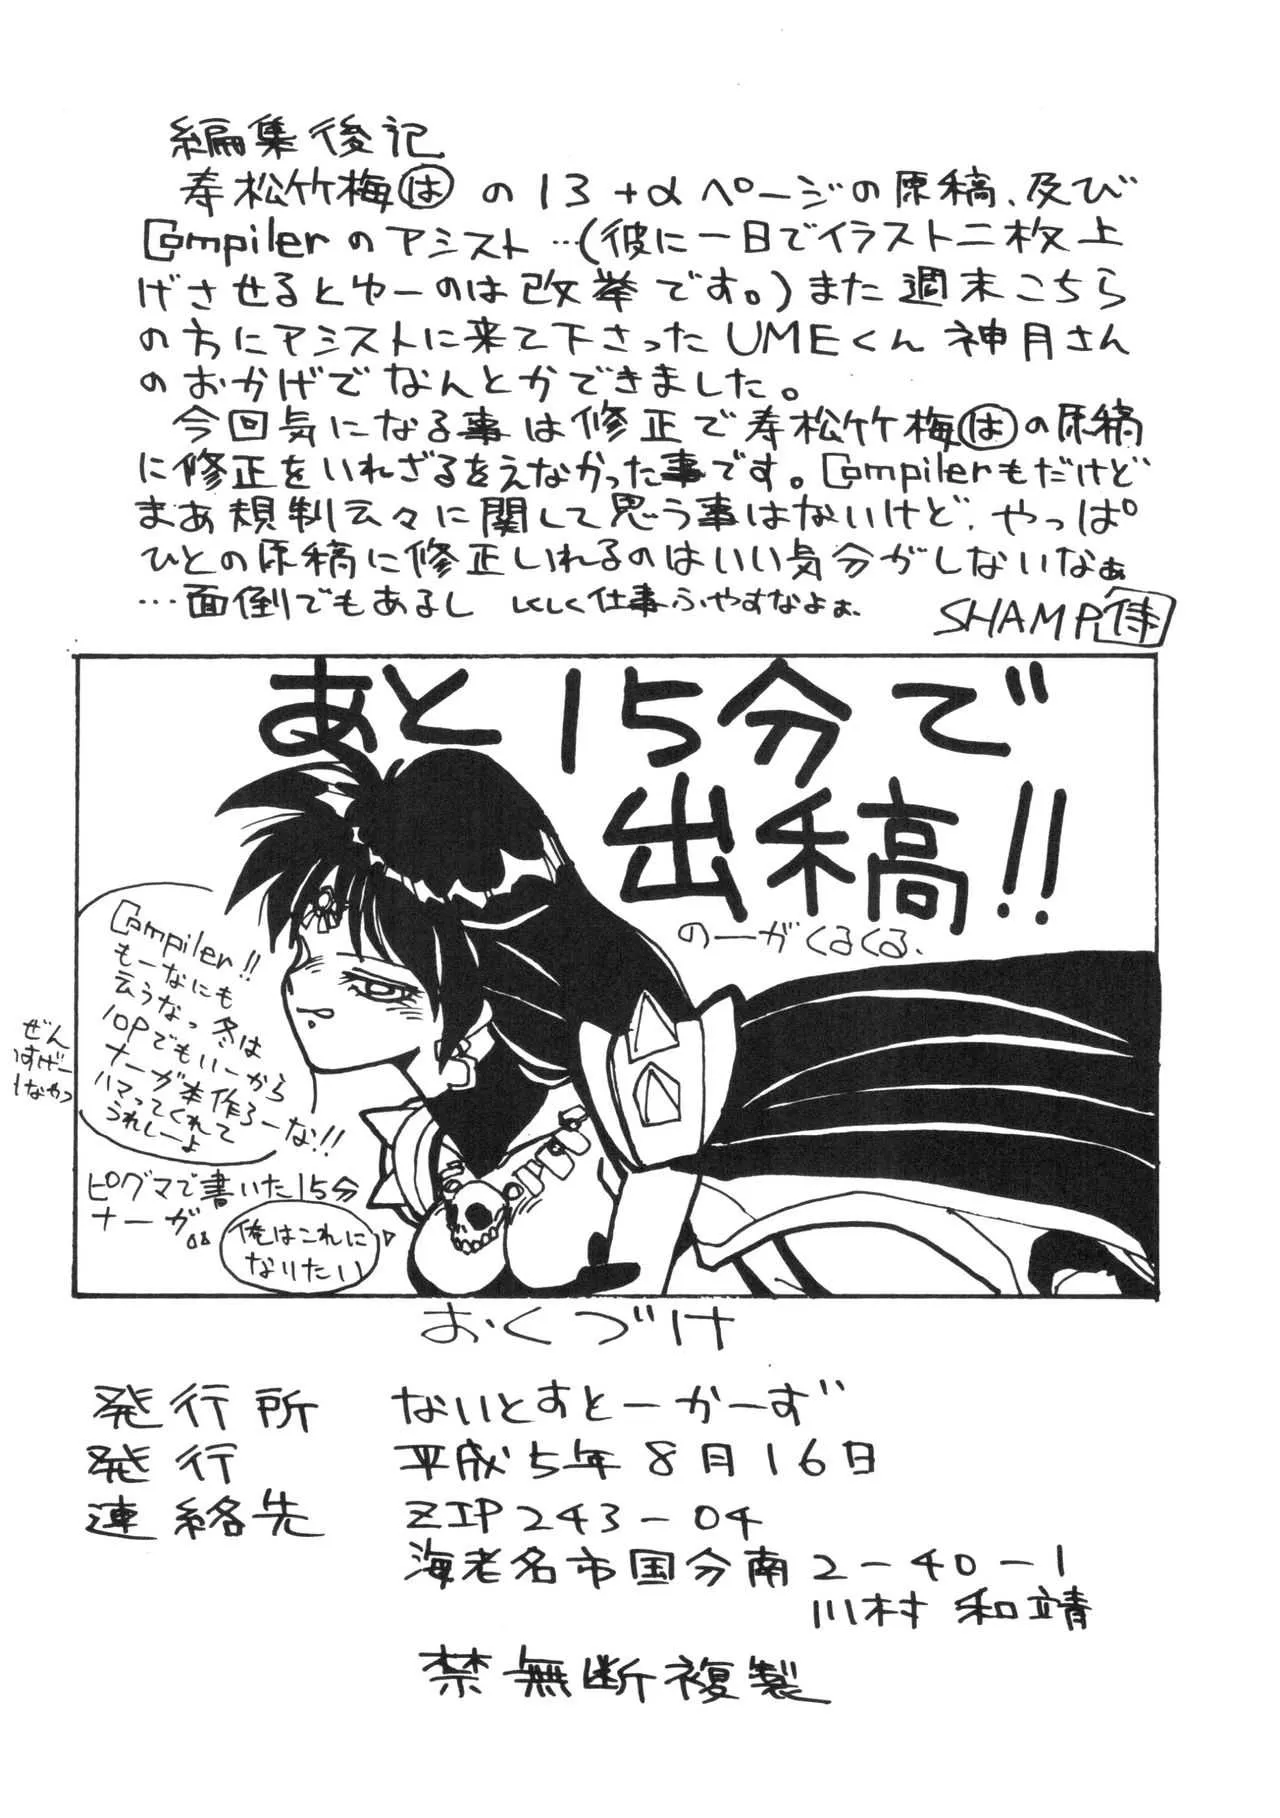 編集後記
寿松竹梅はの13+αページの原稿、及び
Compilerのアシスト…(彼に一日でイラスト二枚上
げさせるとゆーのは改挙です。)また週末こちら
の方にアシストに来て下さったUMEくん 神月さん
のおかげでなんとかできました。
今回気になる事は修正で寿松竹梅はの原稿
に修正をいれざるをえなかった事です。Compilerもだけど
まあ規制云々に関して思う事はないけど、やっぱ
ひとの原稿に修正いれるのはいい気分がしないなぁ
…面倒でもあるし しくしく仕事ふやすなよぉ、
SHAMP侍
あと15分で
出稿!!
のーがくるくる、
Compiler!!
もーなにも
云うなっ 冬は
10Pでもいーから
ナーガ本作ろーな!!
ハマってくれて
うれしーよ
ぜん
すげー
しなやつ
ピグマで書いた15分
ナーガ。
俺はこれに
なりたい
おくづけ
発行所 ないとすとーかーず
発行 平成5年8月16日
連絡先 ZIP243-04
海老名市国分南2-40-1
川村 和靖
禁無断複製